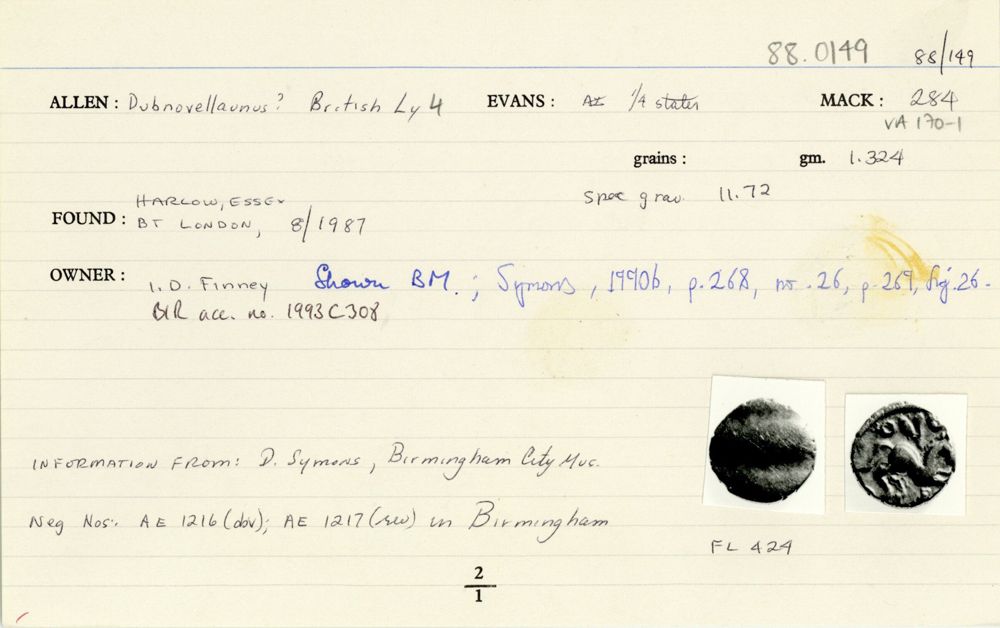 88.0149 88/149
ALLEN : Dubnovellaunus? British Ly 4 EVANS : AI 1/4 stater MACK : 284
VA 170-1
grains : gm. 1.324
HARLOW, ESSEX Spec grav. 11.72
FOUND : BT LONDON, 8/1987
OWNER : I. D. Finney Shown BM. ; Symons, 1990b, p.268, no. 26, p.269, fig. 26.
BIR acc. no. 1993 C 308
INFORMATION FROM: D. Symons, Birmingham City Mus.
Neg Nos: AE 1216 (obv); AE 1217 (rev) in Birmingham
FL 424
2
1